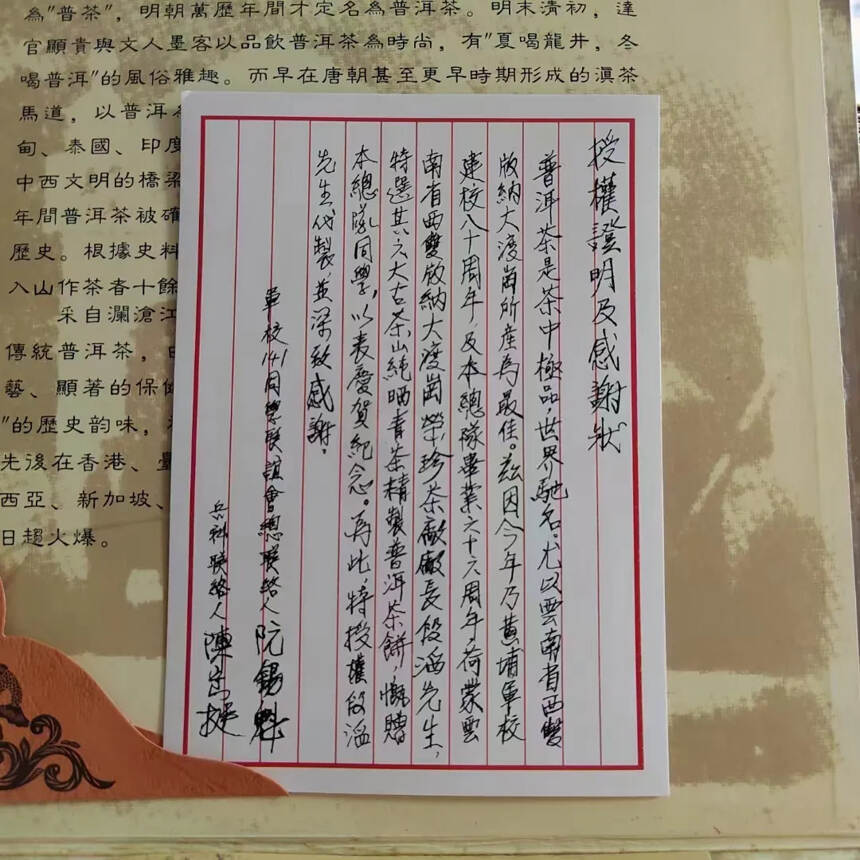 為"普茶"，明朝萬歷年間才定名為普洱茶。明末清初，達
官顯貴與文人墨客以品飲普洱茶為時尚，有"夏喝龍井，冬
喝普洱"的風俗雅趣。而早在唐朝甚至更早時期形成的滇茶
馬道，以普洱
甸、泰國、印度
中西文明的橋梁
年間普洱茶被確
歷史。根據史料
入山作茶者十餘
采自瀾滄江
傳統普洱茶，
藝、顯著的保健
"的歷史韵味，
先後在香港、
西亞、新加坡、
日超火爆。
授權證明及感謝狀
普洱茶是茶中極品，世界馳名。尤以雲南省西雙
版納大渡崗所產為最佳。茲因今年乃黃埔軍校
建校八十周年，及本總隊畢業六十六周年，荷蒙雲
南省西雙版納大渡崗榮珍茶廠廠長段滔先生，
特選其六大古茶山純晒青茶精製普洱茶餅，慨贈
本總隊同學，以表慶賀紀念。為此，特授權段滔
先生代製，並深致感謝。
軍校141同學聯誼會總聯絡人 阮錫
兵科聯絡人 陳